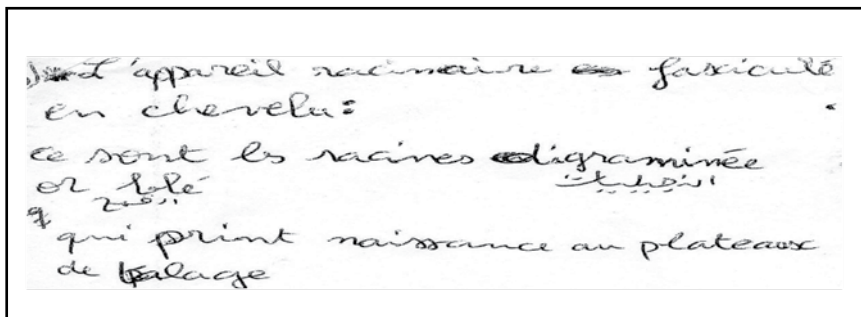 L'appareil racinaire fasciculé
en chevelu:
ce sont les racines digraminée
النجيليات
or blé
القمح
qui primt naissance au plateaux
de talage